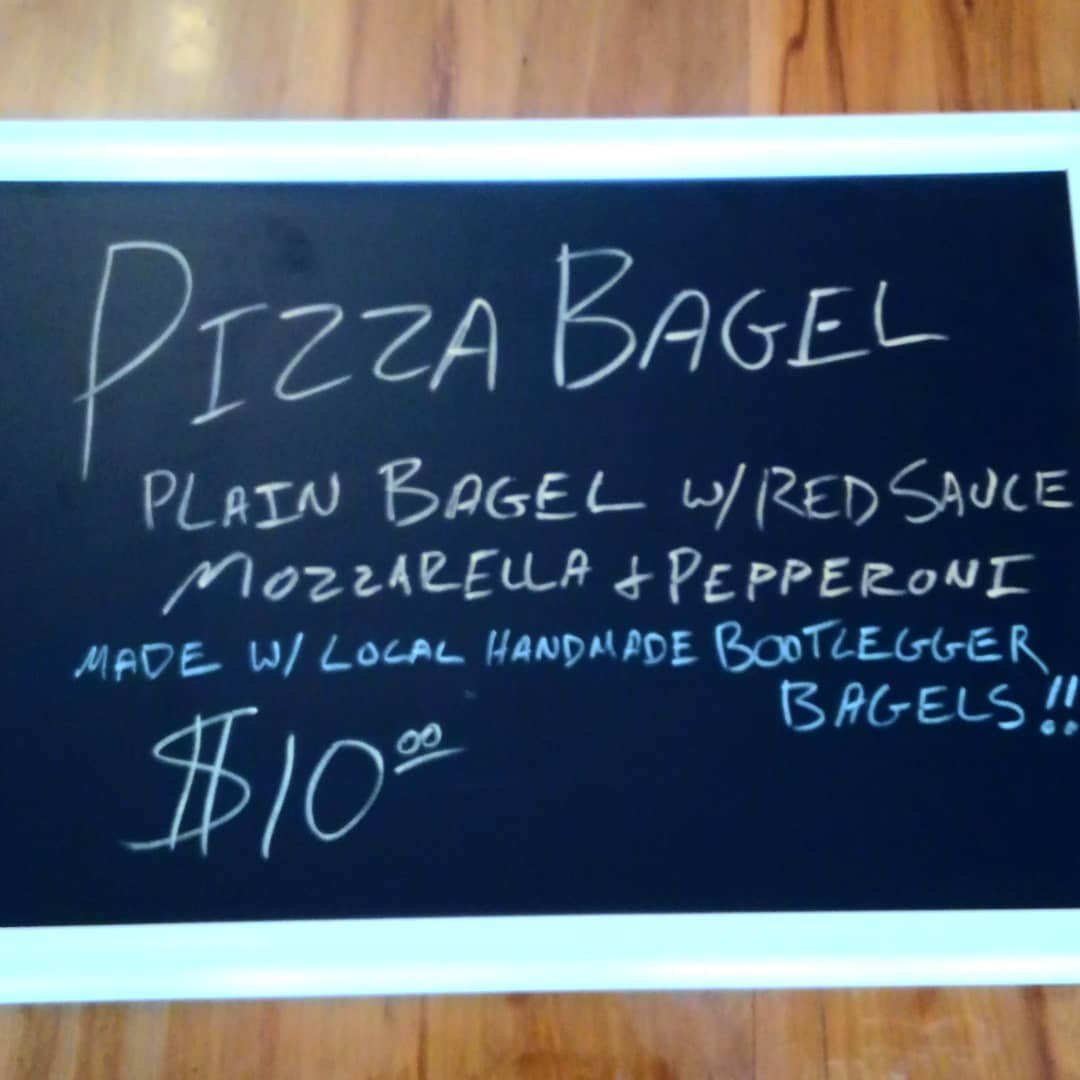 PIZZA BAGEL
PLAIN BAGEL W/ RED SAUCE
MOZZARELLA & PEPPERONI
MADE W/ LOCAL HANDMADE BOOTLEGGER
BAGELS!!
$10.00